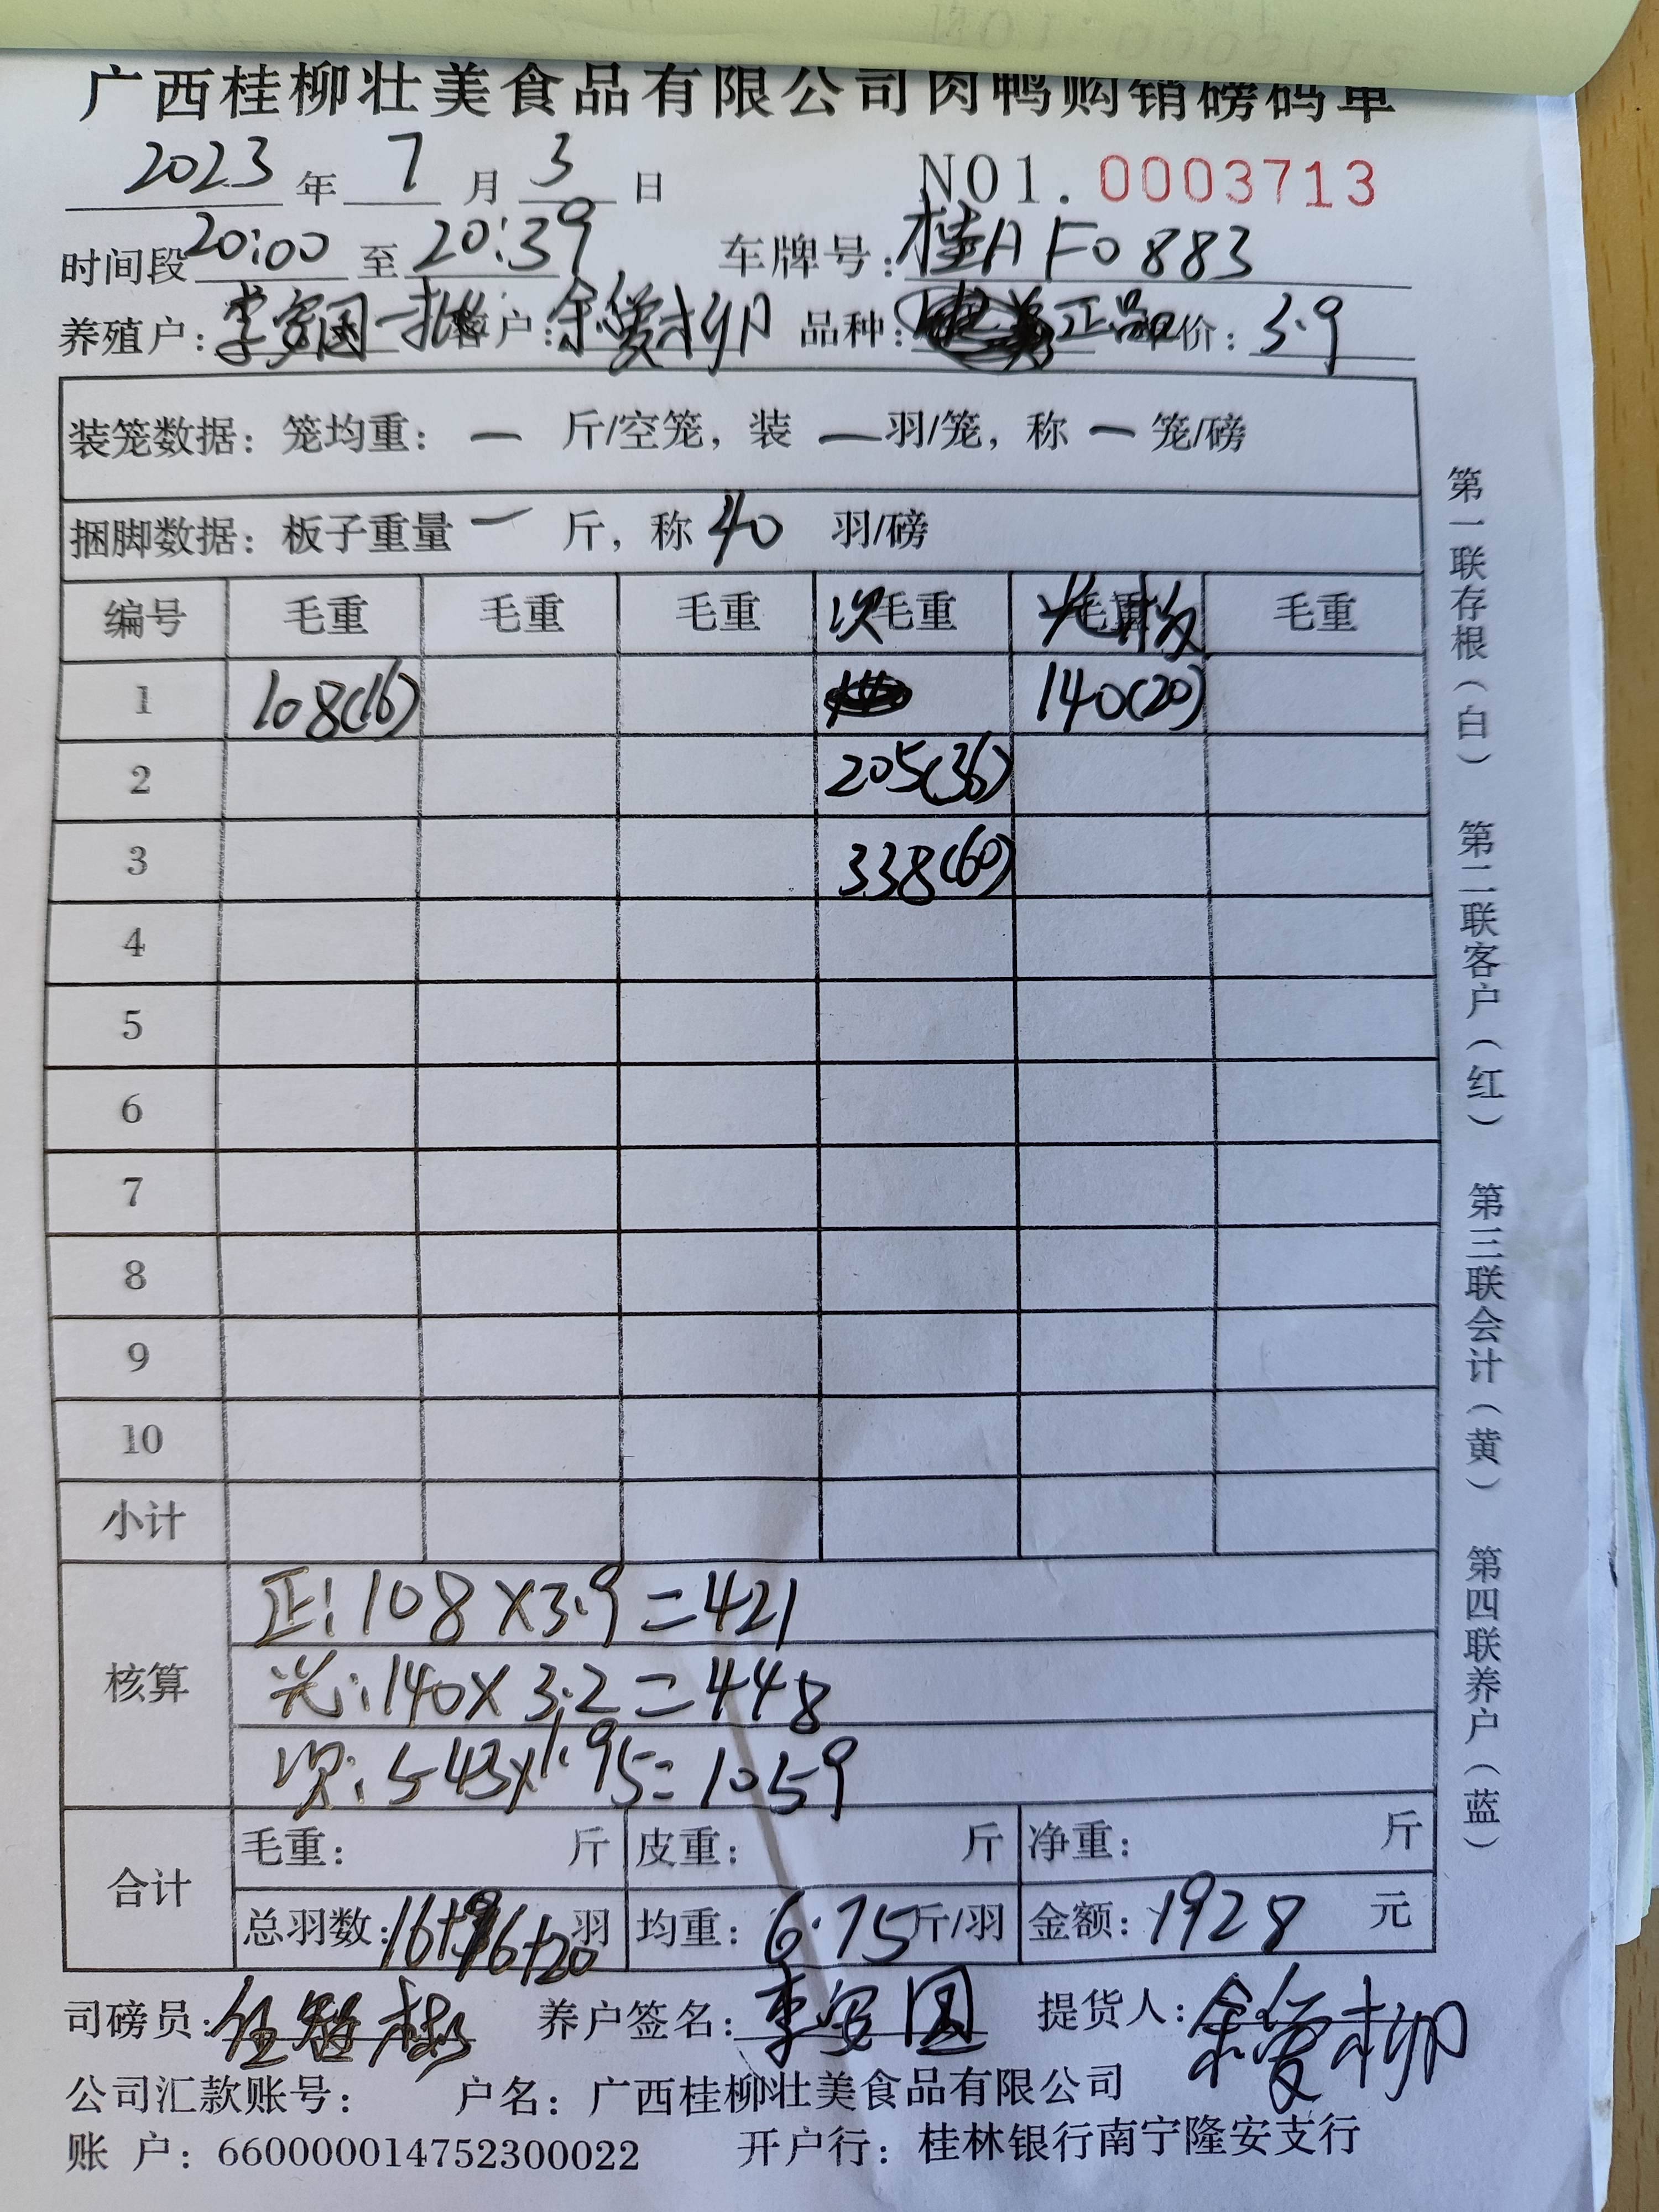 广西桂柳壮美食品有限公司肉鸭购销磅码单
2023年7月3日 NO1.0003713
时间段20:00至20:39 车牌号:桂AF0883
养殖户:李安国一批 客户:余爱柳 品种:正品 单价:3.9
装笼数据:笼均重: 一 斤/空笼,装 一 羽/笼,称 一 笼/磅
捆脚数据:板子重量 一 斤,称 40 羽/磅
编号 毛重 毛重 毛重 次毛重 光毛重 毛重
1 108(16) 140(20)
2 205(36)
3 338(60)
4
5
6
7
8
9
10
小计
核算
正:108×3.9=421
光:140×3.2=448
次:543×1.95=1059
合计
毛重: 斤 皮重: 斤 净重: 斤
总羽数:16+96+20羽 均重:6.75斤/羽 金额:1928元
司磅员: 养户签名:李安国 提货人:余爱柳
公司汇款账号: 户名:广西桂柳壮美食品有限公司
账 户:660000014752300022 开户行:桂林银行南宁隆安支行
第一联存根(白) 第二联客户(红) 第三联会计(黄) 第四联养户(蓝)